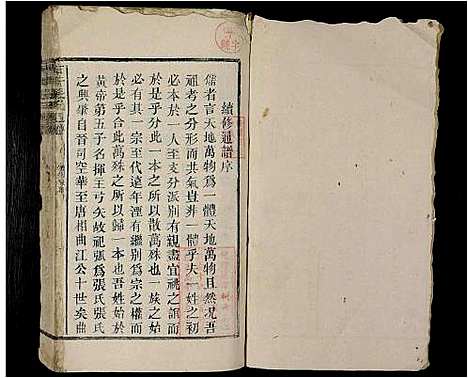 續修通譜序
儒者言天地萬物為一體天地萬物且然況吾
祖考之分形而其氣者非一體乎夫一姓之初
必本於一人至支分派別有親盡宜祧之誼而
必有其一宗至代遠年湮有繼別為宗之權而
於是乎分此一本之所以散萬殊也一族之始
於是乎合此萬殊之所以歸一本也吾姓始於
黃帝第五子名揮王弓矢故祀張為張氏張氏
之興肇自晉司空華至唐相曲江公十世矣曲